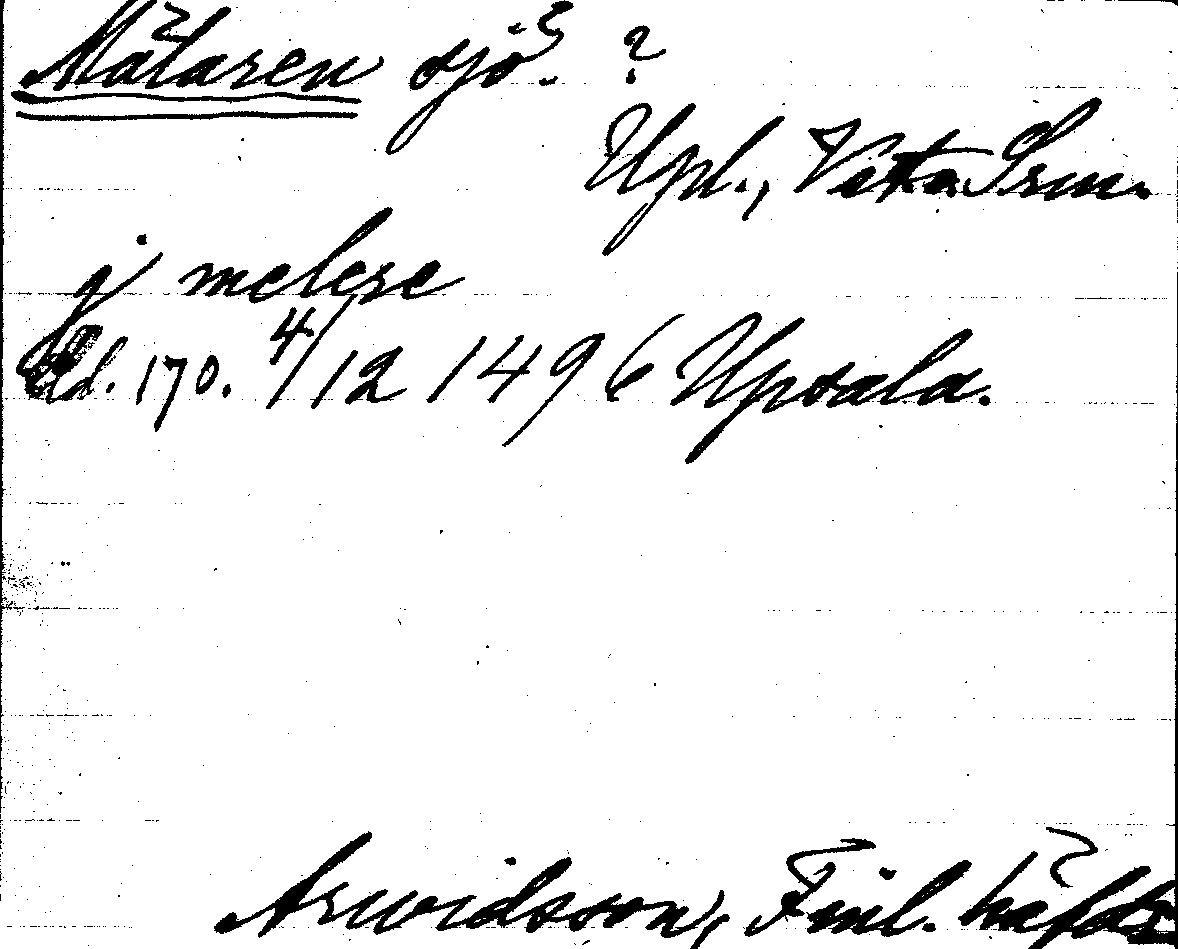 Mälaren sjö. ?
Upl., Vstm. Srm.
j melere
170. 4/12 1496 Upsala.
Arwidsson, Finl. häfd.